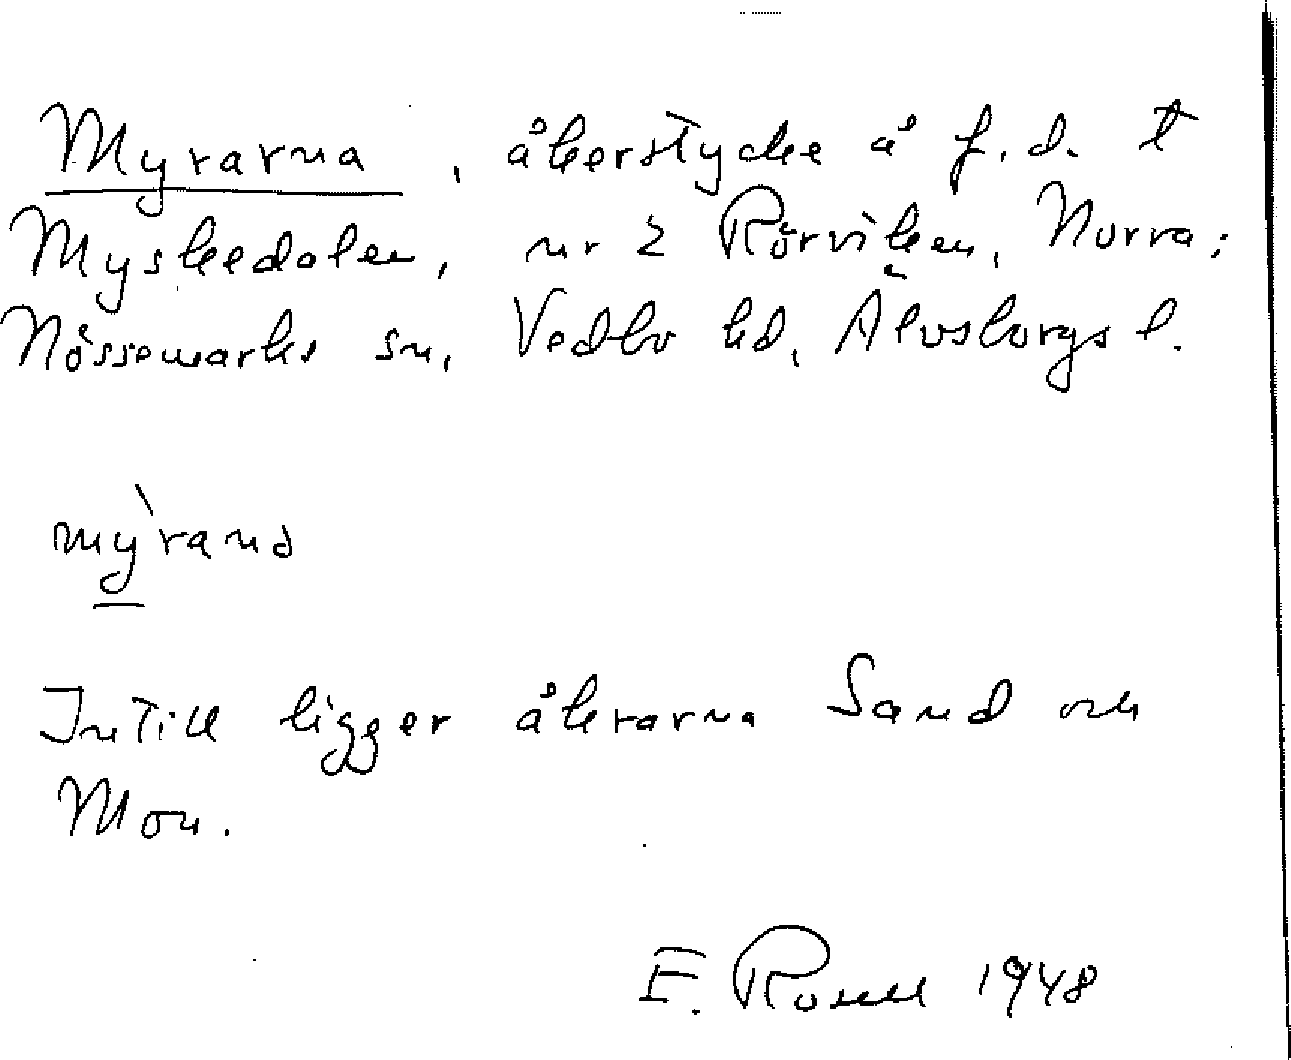 Myrarna, åkerstycke å f.d. t
Myskedalen, nr 2 Rörviken, Norra;
Nössemarks sn, Vedbo hd, Älvsborgs l.
mỳ̱rana
Intill ligger åkrarna Sand och
Mon.
E. Rosell 1948